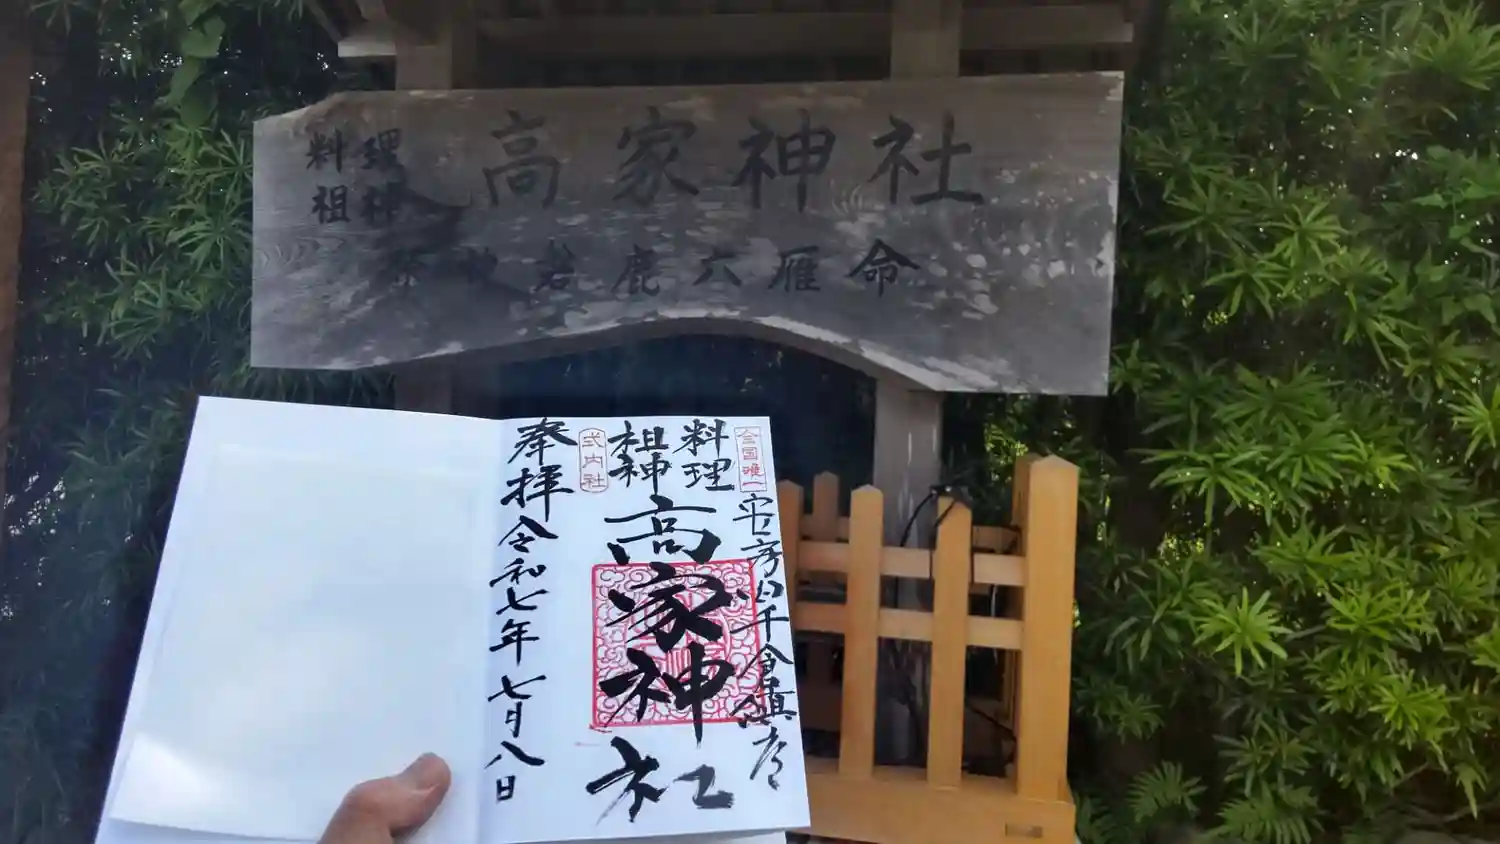 料理
祖神
高家神社
祭神磐鹿六雁命
全国唯一
安房国千倉鎮座
料理
祖神
式内社
高家神社
奉拝
令和七年七月八日